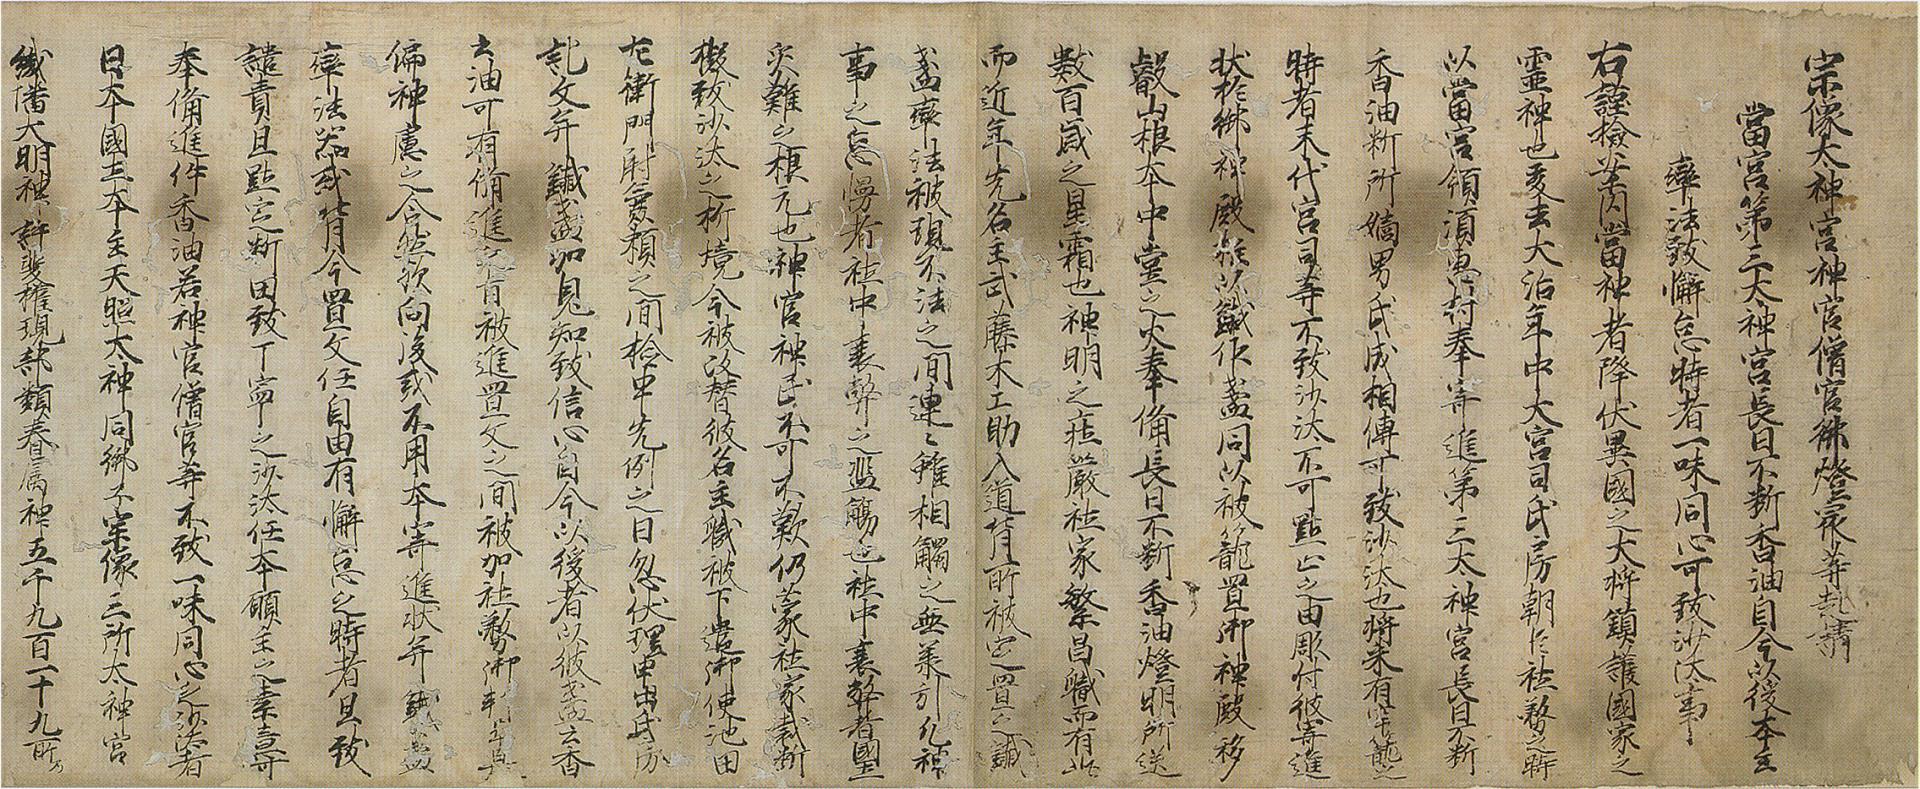 宗像大神宮神官僧官御燈衆等起請
當宮第三大神宮長日不断香油自今以後本主
率法致懈怠時者一味同心可致沙汰事
右謹檢案内當神者降伏異國之大将鎮護國家之
霊神也爰去大治年中大宮司氏房朝臣社務之時
以當宮領須恵村奉寄進第三大神宮長日不断
香油断所嫡男氏成相傳可致沙汰也将来有
時者末代宮司等不致沙汰不可點止之由彫付彼寄進
状於御神殿雖以鐵作盞同以被籠置御神殿移
叡山根本中堂之火奉備長日不断香油燈明所送
數百歳之星霜也神明之荘厳社家繁昌職而有此
而近年先名主武藤木工助入道背所被定置之鐵
盞率法被現不法之間連々雖相觸之無承引凡神
事之怠慢者社中衰弊之濫觴也社中衰弊者國土
災難之根元也神官神民不可不歎仍蒙社家裁断
擬致沙汰之折境今被改替彼名主職被下遣御使池田
左衛門尉實頼之間捨申先例之日忽伏理申出氏房
記文并鐵盞加見知致信心自今以後者以彼盞之香
油可有備進之旨被進置文之間被加社務御判
偏神慮之令然歟向後或不用本寄進状并鐵盞
率法器或背今置文任自由有懈怠之時者且致
譴責且點定断田致丁寧之沙汰任本願主之素意可
奉備進件香油若神官僧官等不致一味同心之沙汰者
日本國主本主天照大神同御子宗像三所大神宮
織幡大明神許斐権現部類眷属神五千九百一十九所